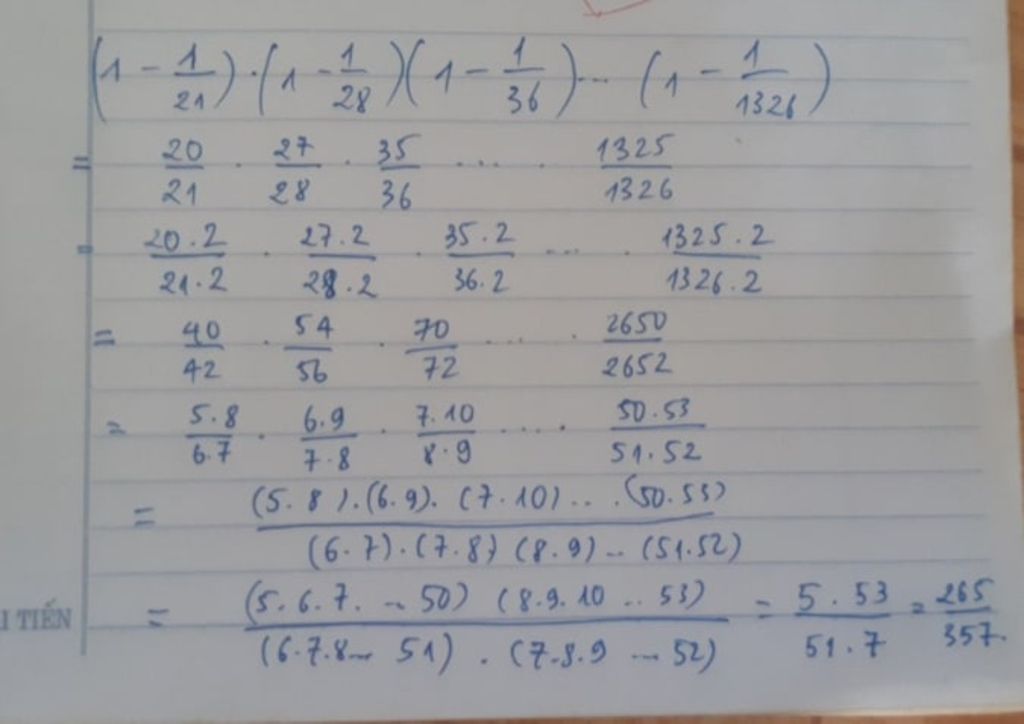 (1 - 1/21) . (1 - 1/28)(1 - 1/36) ... (1 - 1/1326)
= 20/21 . 27/28 . 35/36 .... . 1325/1326
= 20.2/21.2 . 27.2/28.2 . 35.2/36.2 ... . 1325.2/1326.2
= 40/42 . 54/56 . 70/72 .... . 2650/2652
= 5.8/6.7 . 6.9/7.8 . 7.10/8.9 .... . 50.53/51.52
= (5.8).(6.9).(7.10)...(50.53) / (6.7).(7.8)(8.9)...(51.52)
I TIẾN = (5.6.7. ... 50) (8.9.10 ... 53) / (6.7.8... 51) . (7.8.9 ... 52) = 5.53/51.7 = 265/357.